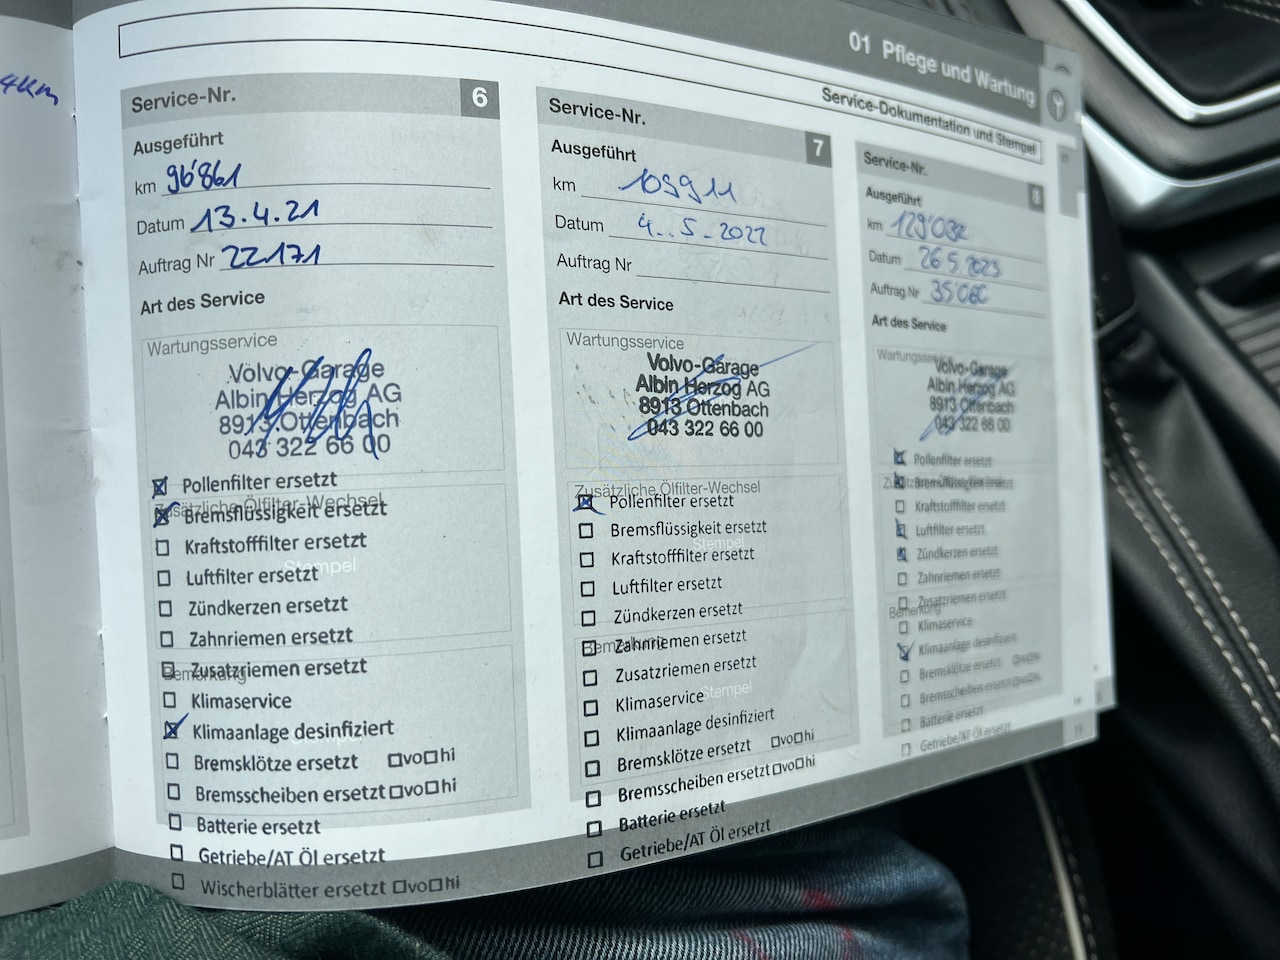 4km
01 Pflege und Wartung
Service-Dokumentation und Stempel
Service-Nr. 6
Ausgeführt
km 96'861
Datum 13.4.21
Auftrag Nr 22171
Art des Service
Wartungsservice
Volvo-Garage
Albin Herzog AG
8913 Ottenbach
043 322 66 00
Pollenfilter ersetzt
Zusätzliche Ölfilter-Wechsel
Bremsflüssigkeit ersetzt
Kraftstofffilter ersetzt
Stempel
Luftfilter ersetzt
Zündkerzen ersetzt
Zahnriemen ersetzt
Zusatzriemen ersetzt
Bemerkung
Klimaservice
Klimaanlage desinfiziert
Stempel
Bremsklötze ersetzt vo hi
Bremsscheiben ersetzt vo hi
Batterie ersetzt
Getriebe/AT Öl ersetzt
Wischerblätter ersetzt vo hi
Service-Nr. 7
Ausgeführt
km 109911
Datum 4..5-2022
Auftrag Nr
Art des Service
Wartungsservice
Volvo-Garage
Albin Herzog AG
8913 Ottenbach
043 322 66 00
Zusätzliche Ölfilter-Wechsel
Pollenfilter ersetzt
Bremsflüssigkeit ersetzt
Stempel
Kraftstofffilter ersetzt
Luftfilter ersetzt
Zündkerzen ersetzt
Bemerkung
Zahnriemen ersetzt
Zusatzriemen ersetzt
Stempel
Klimaservice
Klimaanlage desinfiziert
Bremsklötze ersetzt vo hi
Bremsscheiben ersetzt vo hi
Batterie ersetzt
Getriebe/AT Öl ersetzt
Service-Nr. 8
Ausgeführt
km
Datum 26 5 2023
Auftrag Nr
Art des Service
Wartungsservice
Volvo-Garage
Albin Herzog AG
8913 Ottenbach
043 322 66 00
Pollenfilter ersetzt
Bremsflüssigkeit ersetzt
Kraftstofffilter ersetzt
Luftfilter ersetzt
Zündkerzen ersetzt
Zahnriemen ersetzt
Zusatzriemen ersetzt
Bemerkung
Klimaservice
Klimaanlage desinfiziert
Bremsklötze ersetzt vo hi
Bremsscheiben ersetzt vo hi
Batterie ersetzt
Getriebe/AT Öl ersetzt